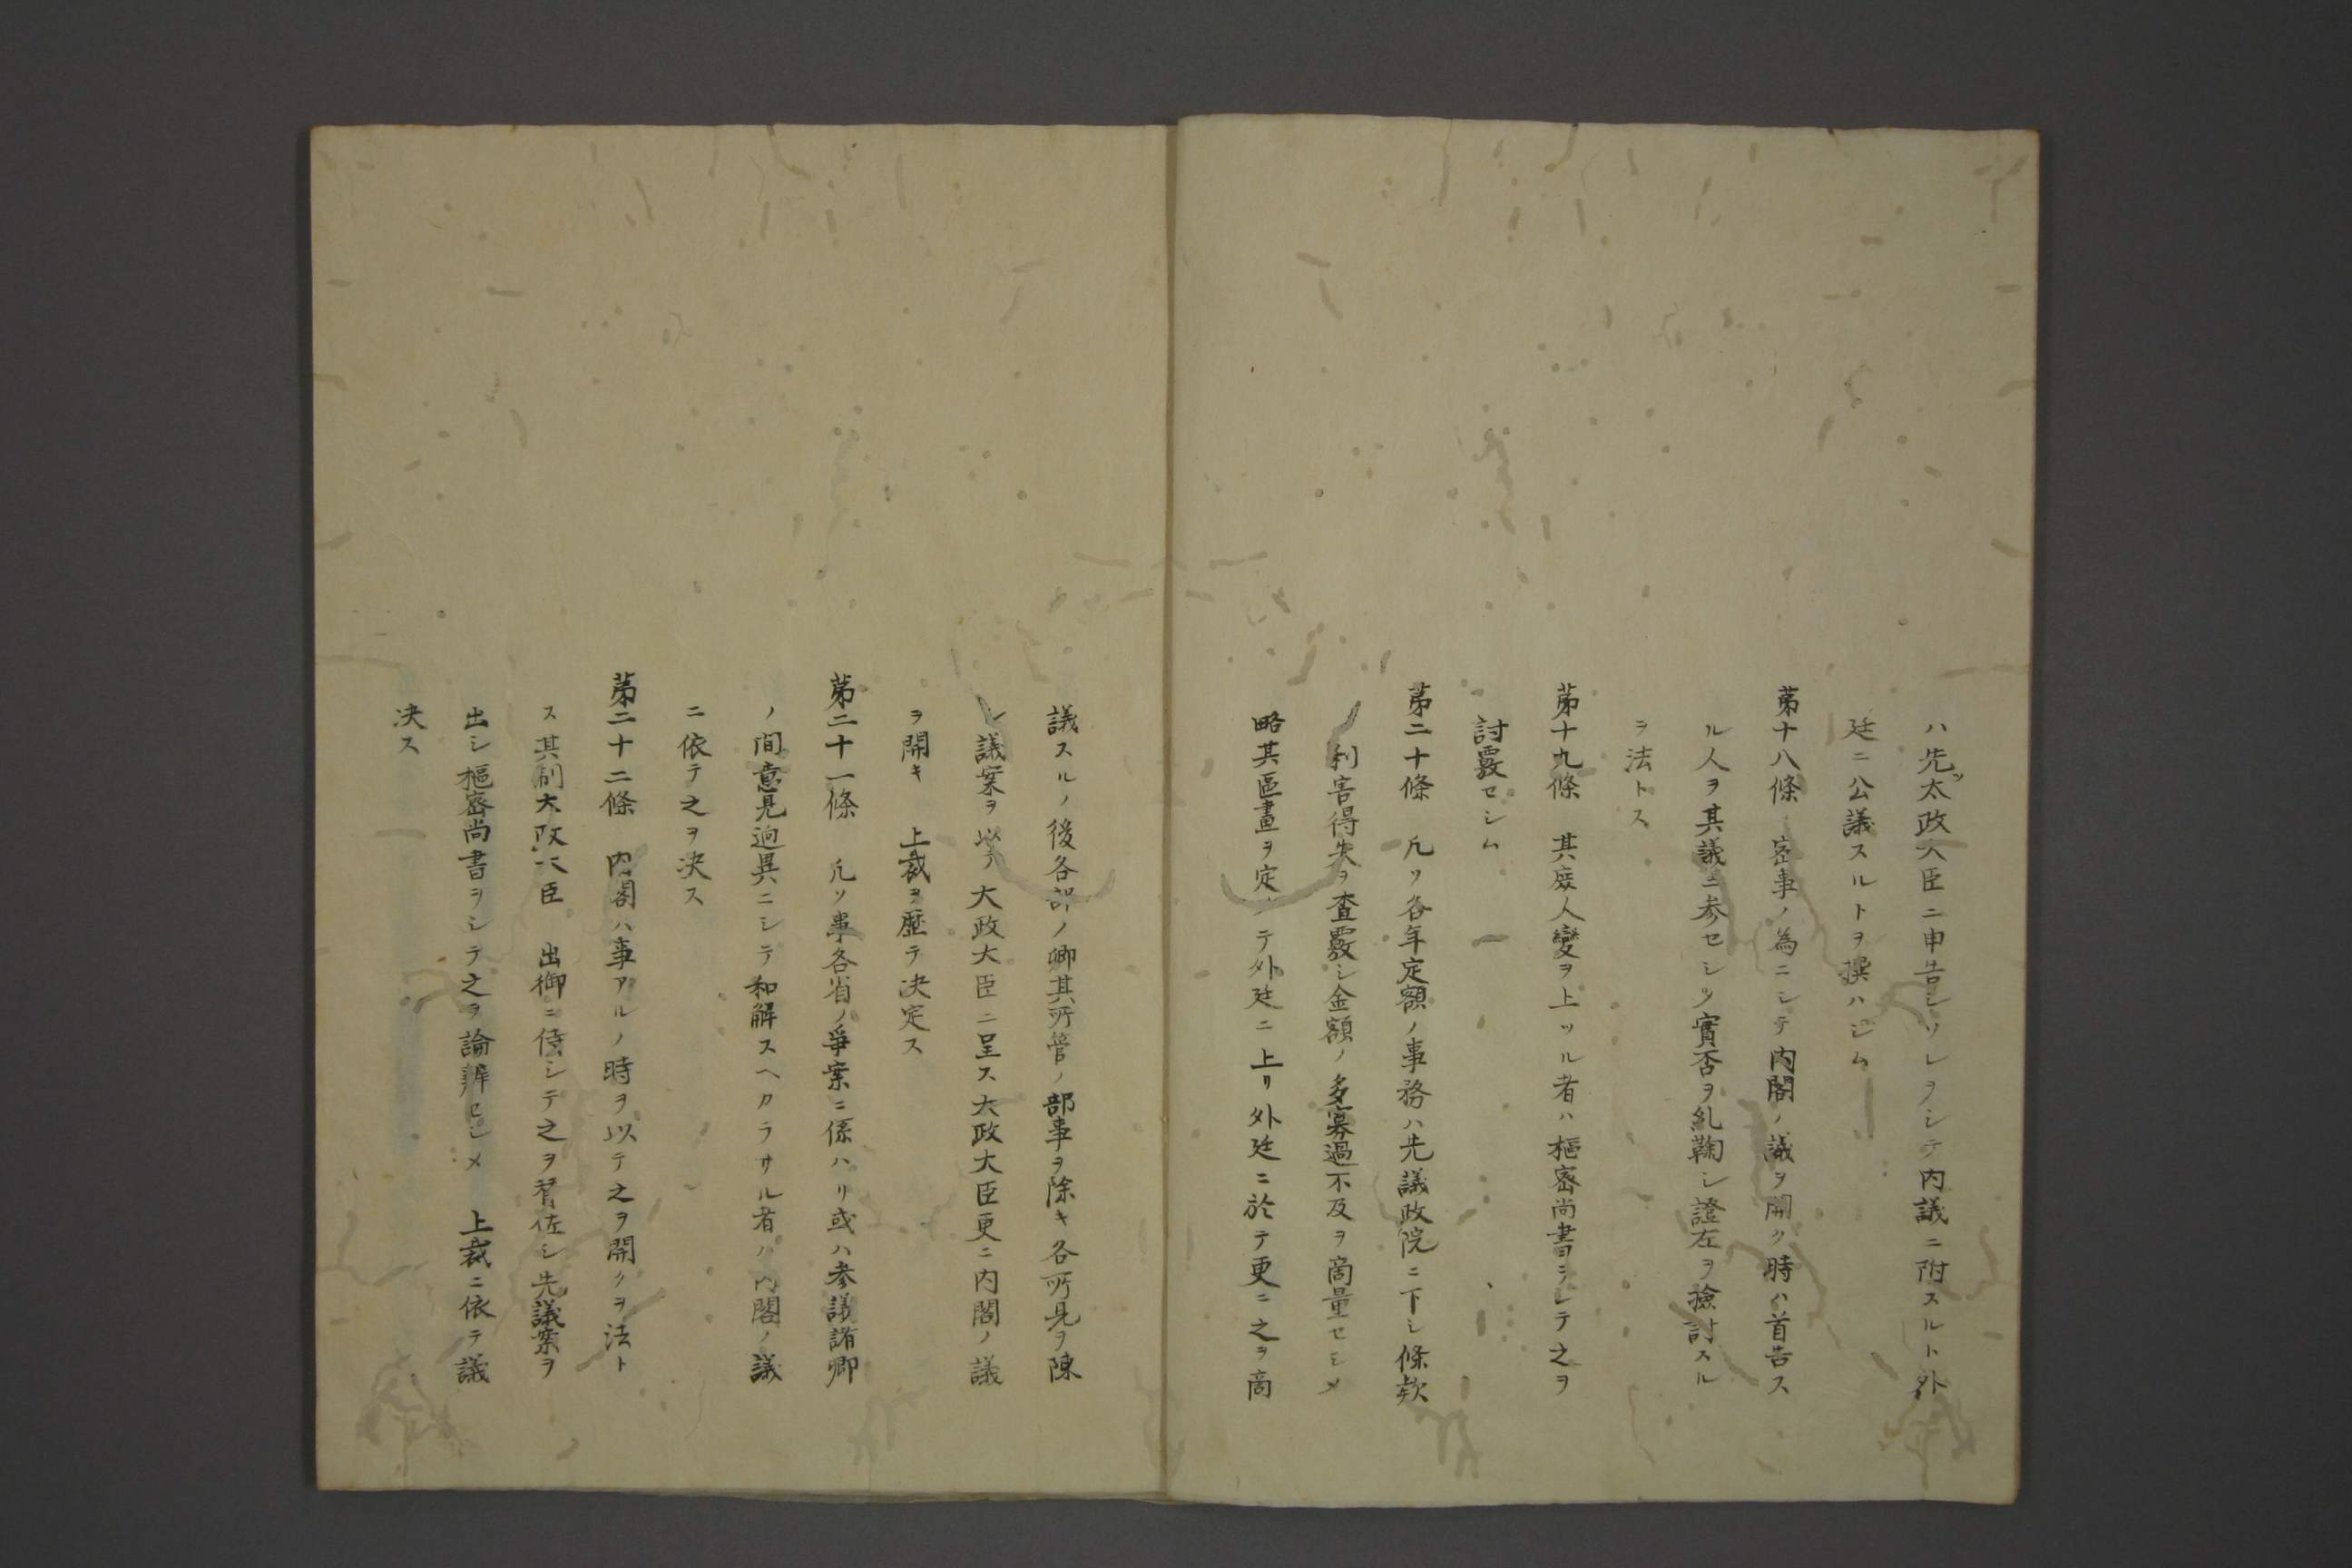 ハ先ツ太政大臣ニ申告シソレヲシテ内議ニ附スルト外
廷ニ公議スルトヲ撰ハシム
第十八條 密事ノ為ニシテ内閣ノ議ヲ開ク時ハ首告ス
ル人ヲ其議ニ参セシメ實否ヲ糺鞠シ證左ヲ撿討スル
ヲ法トス
第十九條 其廢人變ヲ上ツル者ハ樞密尚書ヲシテ之ヲ
討覈セシム
第二十條 凡ソ各年定額ノ事務ハ先議政院ニ下シ條欵
利害得失ヲ査覈シ金額ノ多寡過不及ヲ商量セシメ
略其區畫ヲ定メテ外廷ニ上リ外廷ニ於テ更ニ之ヲ商
議スルノ後各部ノ卿其所管ノ部事ヲ除キ各所見ヲ陳
シ議案ヲ以テ大政大臣ニ呈ス大政大臣更ニ内閣ノ議
ヲ開キ 上裁ヲ歴テ決定ス
第二十一條 凡ソ事各省ノ爭案ニ係ハリ或ハ参議諸卿
ノ間意見逈異ニシテ和解スヘカラサル者ハ内閣ノ議
ニ依テ之ヲ決ス
第二十二條 内閣ハ事アルノ時ヲ以テ之ヲ開クヲ法ト
ス其制大政大臣 出御ニ侍シテ之ヲ督佐シ先議案ヲ
出シ樞密尚書ヲシテ之ヲ論辨セシメ 上裁ニ依テ議
決ス